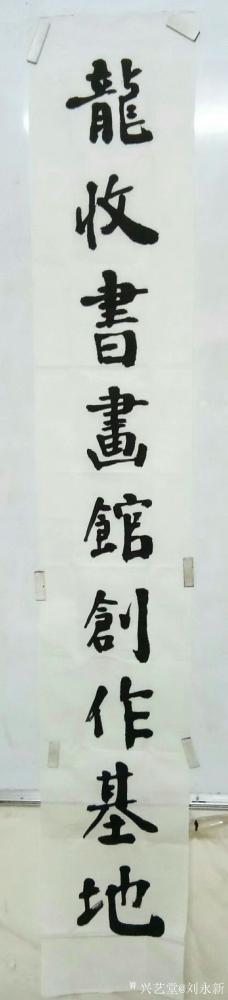 龍收書畫館創作基地
兴艺堂@刘永新